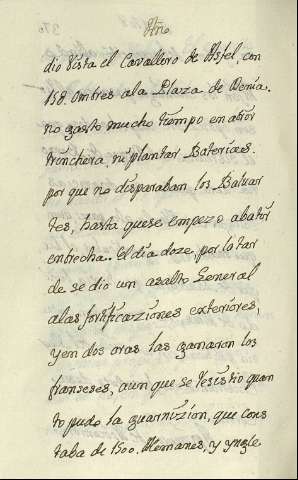 Año
dio vista el Cavallero de Asfel, con
158. ombres ala Plaza de Denia.
no gasto mucho tiempo en abrir
trinchera, ni plantar Baterias.
por que no disparaban los Baluar
tes, hasta quese empezo abatir
entrecha. El dia doze, por la tar
de se dio un asalto General
alas fortificaziones exteriores,
y en dos oras las ganaron los
franseses, aun que se resistio quan
to pudo la guarnizion, que cons
taba de 1500. Alemanes, y yngle